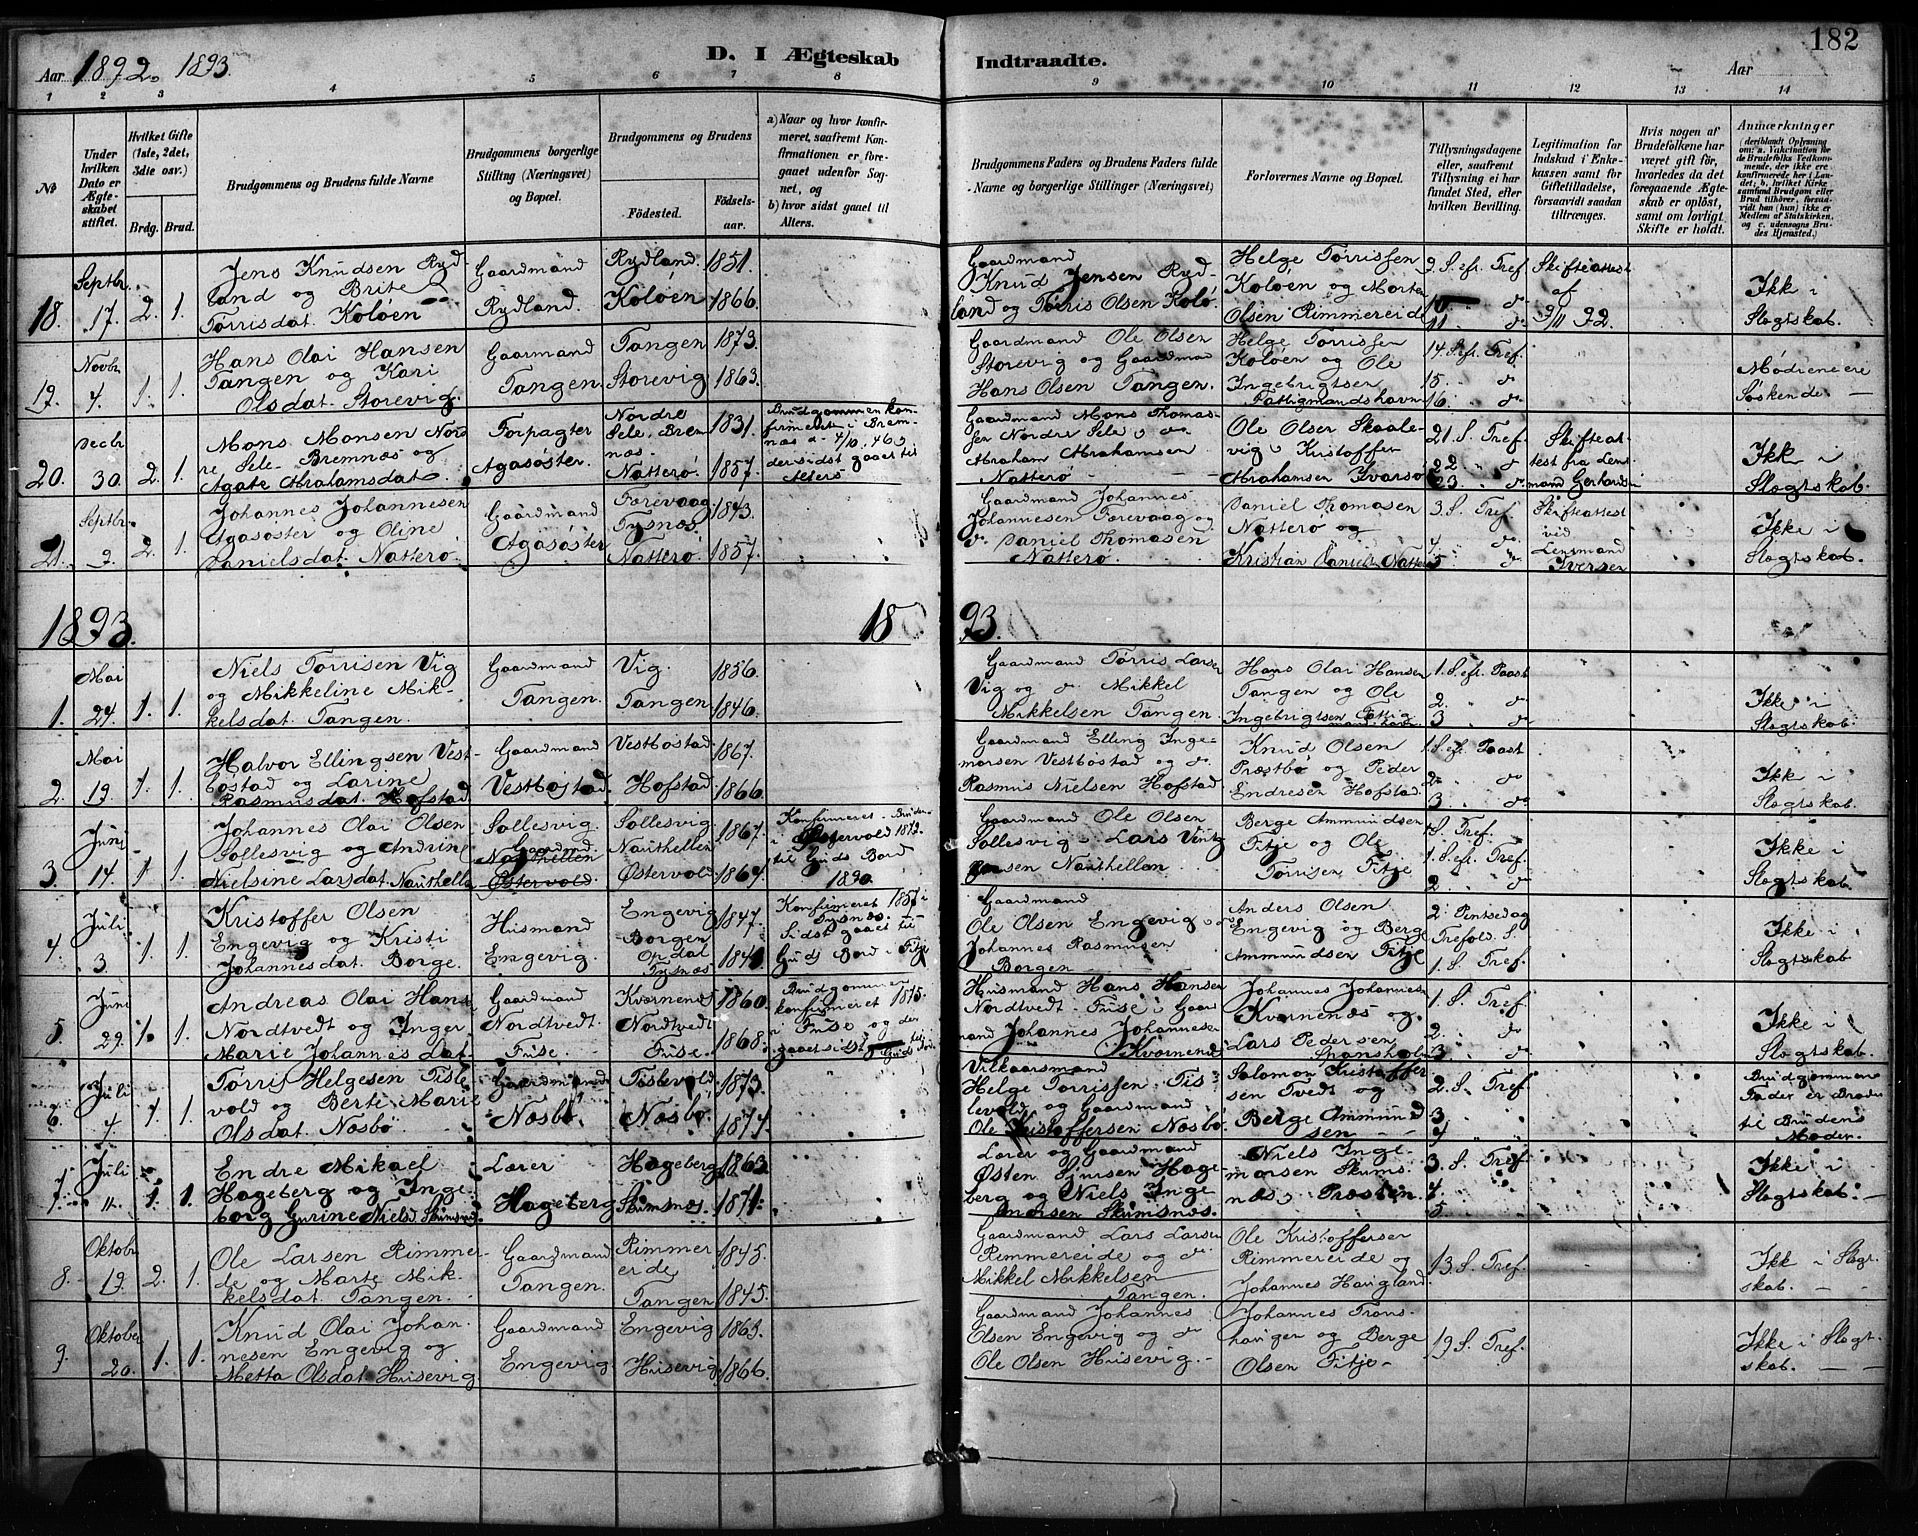 182
Aar 1892. 1893. D. I Ægteskab Indtraadte. Aar
1 2 3 4 5 6 7 8 9 10 11 12 13 14
No
Under hvilken Dato er Ægteskabet stiftet.
Hvilket Gifte (1ste, 2det, 3die osv.)
Brdg. Brud.
Brudgommens og Brudens fulde Navne
Brudgommens borgerlige Stilling (Næringsvei) og Bopæl.
Brudgommens og Brudens
Fødested. Fødselsaar.
a) Naar og hvor konfirmeret, saafremt Konfirmationen er foregaaet udenfor Sognet, og
b) hvor sidst gaaet til Alters.
Brudgommens Faders og Brudens Faders fulde Navne og borgerlige Stillinger (Næringsvei)
Forlovernes Navne og Bopæl.
Tillysningsdagene eller, saafremt Tillysning ei har fundet Sted, efter hvilken Bevilling.
Legitimation for Indskud i Enkekassen samt for Giftetilladelse, forsaavidt saadan tiltrænges.
Hvis nogen af Brudefolkene har været gift før, hvorledes da det foregaaende Ægteskab er opløst, samt om lovligt Skifte er holdt.
Anmærkninger
(deriblandt Oplysning om: a. Vakcination for de Brudefolks Vedkommende, der ikke ere konfirmerede her i Landet; b. hvilket Kirkesamfund Brudgom eller Brud tilhører, forsaavidt han (hun) ikke er Medlem af Statskirken, og c. udensogns Brudes Hjemsted.)
18. Septbr. 17. 2. 1.
Jens Knudsen Ryd-
land og Brite
Torrisdat. Koløen
Gaardmand
Rydland
Rydland. 1851.
Koløen 1866.
Gaardmand
Knud Jensen Ryd-
land og Tørris Olsen Kolø.
Helge Tørrissen
Koløen og Morten
Olsen Rimmereide
9. S. ef. Tref
10 " d
11 " d
Skifteattest
af
9/11 92.
Ikke i
Slegtskab.
19. Novbr. 4. 1. 1.
Hans Olai Hansen
Tangen og Kari
Olsdat. Storevig.
Gaarmand
Tangen
Tangen 1873.
Storevig 1863.
Gaardmand Ole Olsen
Storevig og Gaardmand
Hans Olsen Tangen.
Helge Torrissen
Koløen og Ole
Ingebrigtsen
Fattigmandshavn
14. S. ef. Tref.
15. " d
16. " d
Mødrene ere
Søskende
20. Decbr. 30. 2. 1.
Mons Monsen Nord
re Sele Bremnæs og
Agate Abrahamsdat
Forpagter
Agasøster.
Nordre
Sele, Brem
næs 1831.
Natterø. 1857.
Brudgommen kon-
firmeret i Brem-
næs d. 4/10 46 og
der sidst gaaet til
Alters
Gaardmand Mons Thomas-
sen Nordre Sele, d
Abraham Abrahamsen
Natterø
Ole Olsen Skaale-
vig, Kristoffer
Abrahamsen Ivarsø
21. S. Tref
22 " d
23 " d
Skifteat-
test fra Lens-
mand Gerhardsen
Ikk i
Slegtskab.
21. Septbr. 9. 2. 1.
Johannes Johannesen
Agasøster og Oline
Danielsdat Natterø.
Gaardmand
Agasøster
Færevaag
Tysnæs 1843.
Natterø 1857.
Gaardmand Johannes
Johannesen Færevaag og
d. Daniel Thomasen
Natterø.
Daniel Thomasen
Natterø og
Kristian Daniels. Natterø
3. S. Tref
4 " d
5 " d
Skifteattest
ved
Lensmand
Iversen
Ikke i
Slegtskab.
1893. 18 93.
1. Mai 24. 1. 1.
Niels Tørrisen Vig
og Mikkeline Mik-
kelsdat Tangen.
Gaardmand
Tangen.
Vig 1856.
Tangen 1846.
Gaardmand Tørris Larsen
Vig og d. Mikkel
Mikkelsen Tangen.
Hans Olai Hansen
Tangen og Ole
Ingebrigtsen Fattig
mandshavn
1. S. ef. Paask
2. " d
3 " d
Ikke i
Slegtskab.
2. Mai 19. 1. 1.
Halvor Ellingsen Vest-
bøstad og Larine
Rasmusdat. Hofstad
Gaardmand
Vestbøstad.
Vestbøstad 1867.
Hofstad 1866.
Gaardmand Elling Inge-
morsen Vestbøstad og d.
Rasmus Nielsen Hofstad
Knud Olsen
Præstbø og Peder
Endresen Hofstad
1. S. ef. Paask
2 " d
3 " d
Ikk i
Slegtskab.
3. Juni 14. 1. 1.
Johannes Olai Olsen
Sollesvig og Andrine
Nielsine Larsdat. Nauthella
Sollesvig.
Gaardmd
Nauthellen
Østervold.
Sollesvig. 1867.
Nauthellen
Østervold. 1864.
Konfirmeret Bruden
i Østervold 1879.
til Guds Bord
1890.
Gaardmand Ole Olsen
Sollesvig, Lars
Nauthellen
Berge Ammundsen
Fitje og Ole
Tørrisen Fitje
S. Tref.
1. S. ef. Tref
2 " d
Ikke i
Slegtskab.
4. Juli 3. 1. 1.
Kristoffer Olsen
Engevig og Kristi
Johannesdat. Borge.
Husmand
Engevig.
Engevig 1847.
Borgen
Opdal
Tysnæs
Konfirmeret 1857 i
Tysnæs.
Sidst gaaet til
Guds Bord i Fitje
Gaardmand
Ole Olsen Engevig og
Johannes Rasmussen
Borgen
Anders Olsen
Engevig og Berge
Ammundsen Fitje
2. Pintsedag
Trefold. S.
1. S. Tref.
Ikke i
Slegtskab
5. Juni 29. 1. 1.
Andreas Olai Hans.
Nordtvedt og Inger
Marie Johannesdat
Gaardmand
Nordtvedt.
Fuse.
Kvernenes 1860.
Nordtvedt
Fuse. 1868.
Brudgommen
konfirmeret 1875.
i Fuse og der
gaaet sidst til
Guds Bord.
Husmand Hans Hansen
Nordtvedt Fuse, Gaard
mand Johannes Johannesen
Kvernenæs
Johannes Johannesen
Kvernenæs og
Lars Pedersen
1. S. Tref.
2. " d
3 " d
Ikke i
Slegtskab.
6. Juli 4. 1. 1.
Tørris Helgesen Tisle-
vold og Berte Marie
Olsdat Nosbø
Gaardmand
Nosbø.
Tislevold 1873.
Nosbø. 1874.
Vilkaarsmand
Helge Torrissen Tis-
levold og Gaardmand
Ole Kristoffersen Nosbø.
Salomon Kristoffer
sen Tvedt og
Berge Ammund
sen
2. S. Tref
3 "
4 "
Brudgommens
Fader er Broder
til Brudens
Moder.
7. Juli 11. 1. 1.
Endre Mikael
Hageberg og Inge-
borg Gurine Nielsd. Skumsnæs.
Lærer
Hageberg
Hageberg 1863.
Skumsnæs. 1871.
Lærer og Gaardmand
Østen Sjursen Hage-
berg og Niels Inge
morsen Skumsnæs.
Niels Inge-
morsen Skums-
næs, Præsten.
3. S. Tref
4. "
5 "
Ikke i
Slegtskab.
8. Oktober 19. 2. 1.
Ole Larsen Rimmer-
eide og Marte Mik-
kelsdat. Tangen.
Gaardmand
Tangen.
Rimmer
eide 1845.
Tangen 1845.
Gaardmand Lars Larsen
Rimmereide og d.
Mikkel Mikkelsen
Tangen.
Ole Kristoffersen
Rimmereide og
Johannes Haugland
13. S. Tref.
Ikk i Slegt-
skab.
9. Oktober 20. 1. 1.
Knud Olai Johan-
nesen Engevig og
Metta Olsdat Husevig
Gaardmand
Engevig.
Engevig 1863.
Husevig 1866.
Gaardmand Johannes
Olsen Engevig og d
Ole Olsen Husevig.
Johannes Trons-
havger og Berge
Olsen Fitje
19 S. Tref.
Ikke i Slegt-
skab.